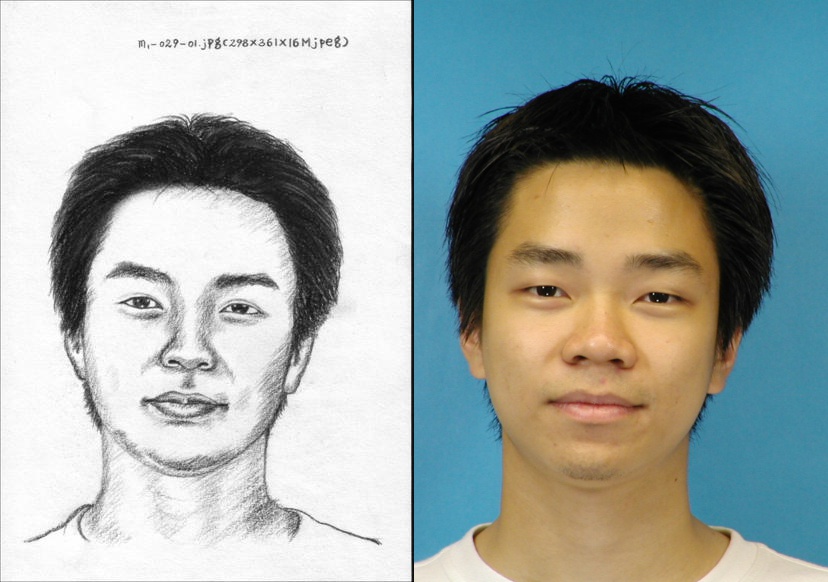 m,-029-01.jpg(298×361×16Mjpeg)